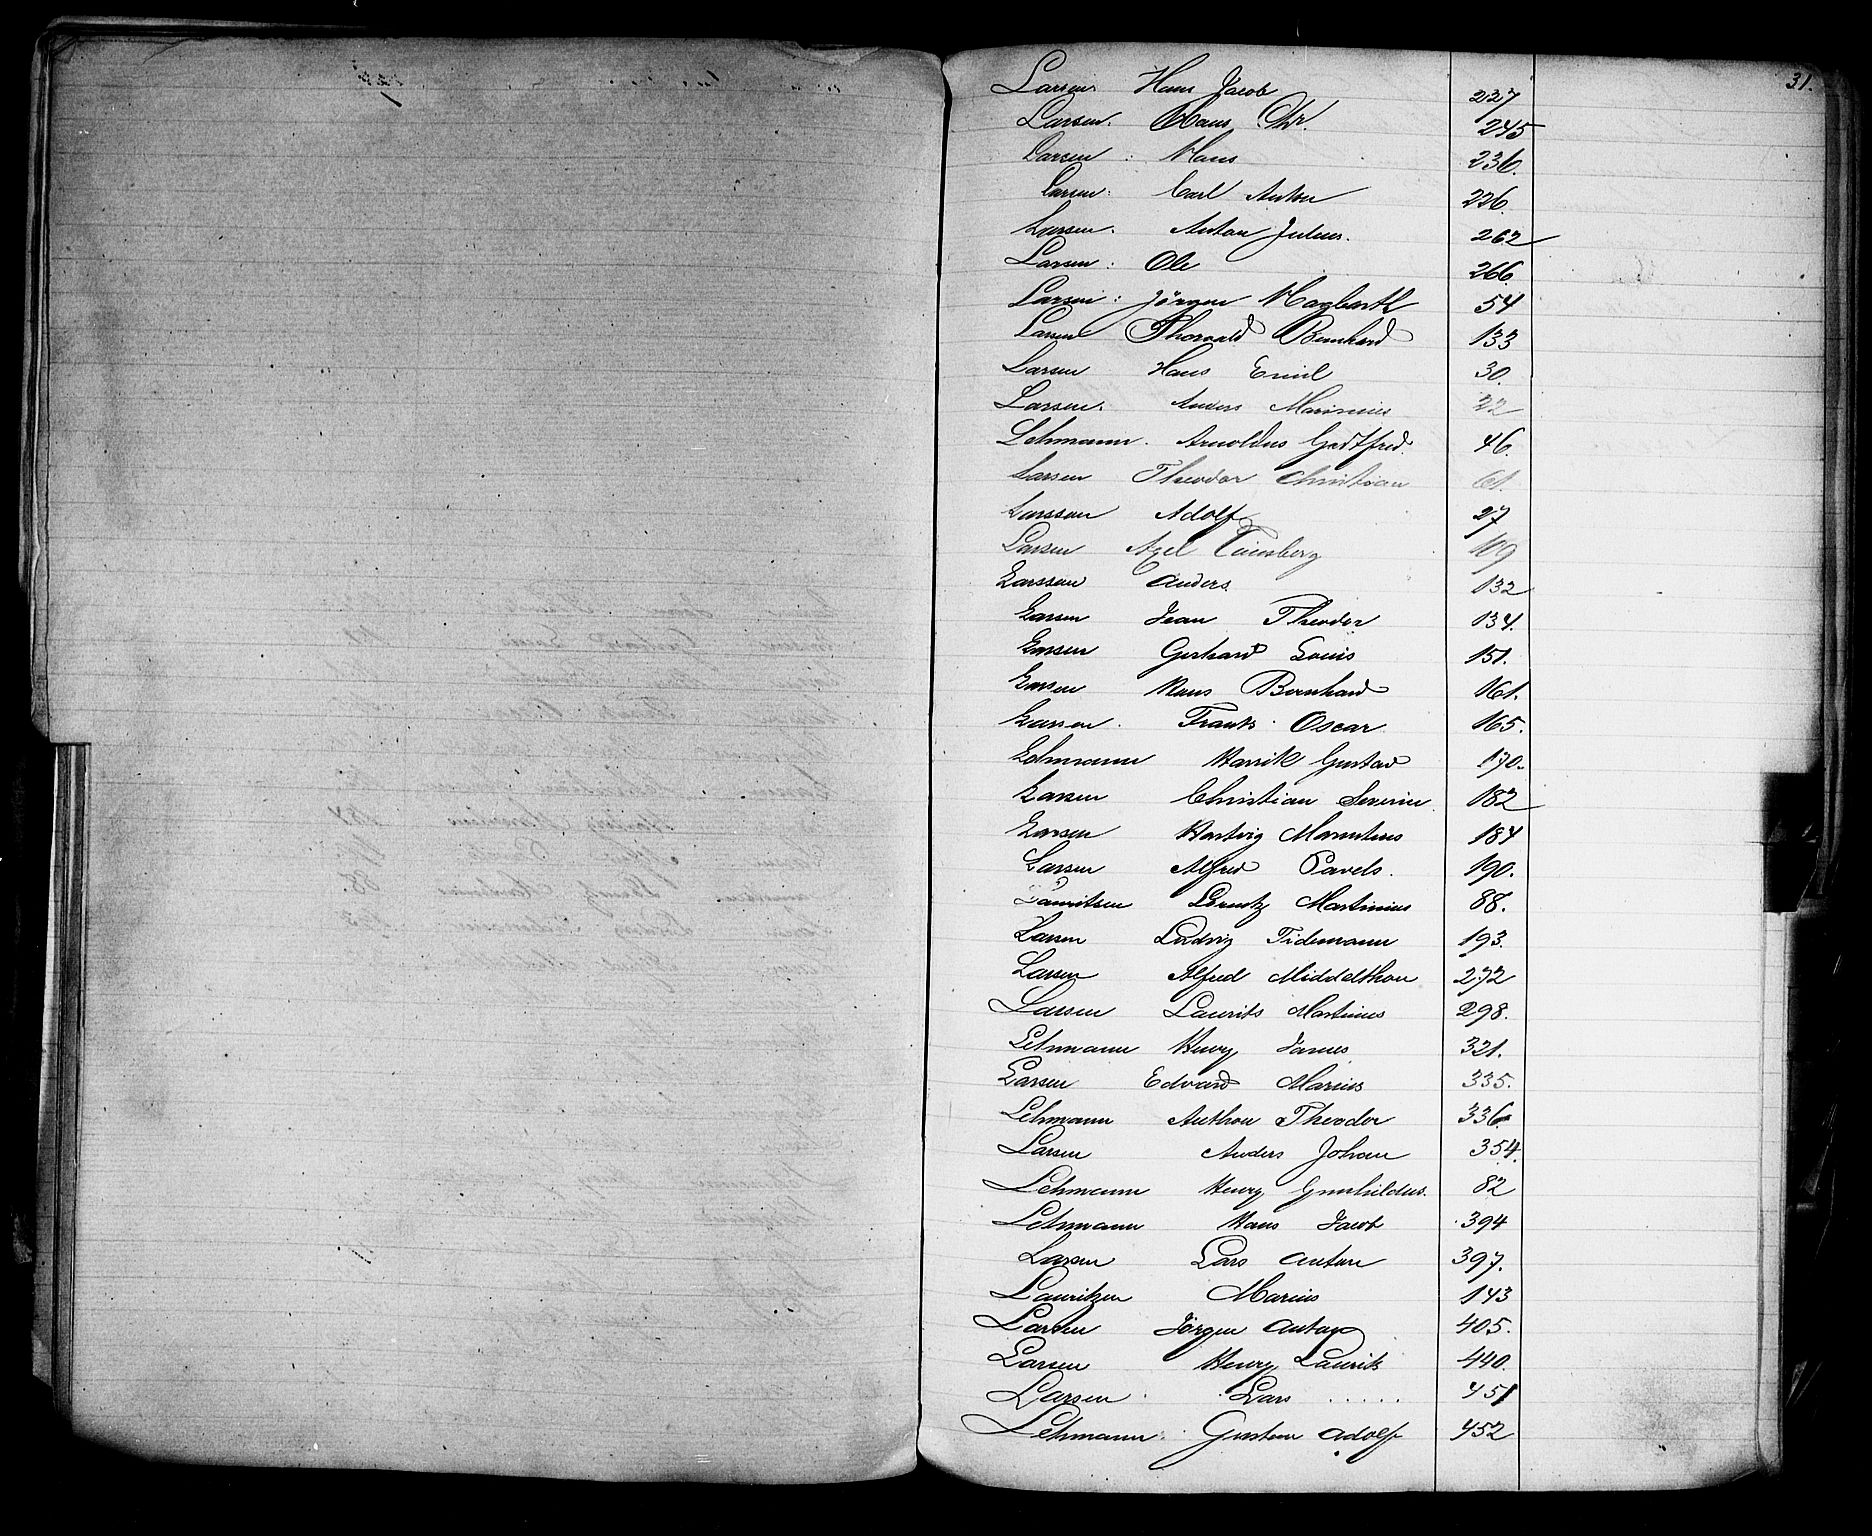 31.
Larsen Hans Jacob 227
Larsen. Hans Chr. 245
Larsen : Hans 236.
Larsen: Carl Anton 226.
Larsen. Anton Julius. 262
Larsen: Ole 266.
Larsen: Jörgen Hagbarth 54
Larsen Thorvald Bernhard 133
Larsen Hans Emil 30.
Larsen. Anders Marinius 22
Lehmann. Arnoldus Godtfred. 46.
Larsen Theodor Christian 61.
Larsson Adolf 27
Larsen Axel 109
Larsson Anders. 132
Larsen Jean Theodor 134.
Larsen Gerhard Louis 151.
Larsen Hans Bernhard 161.
Larsen. Frantz Oscar. 165.
Lehmann Henrik Gustav 170.
Larsen Christian Severin 182
Larsen Hartvig Marentius 184
Larsen Alfred Pavels. 190.
Lauritsen Lorentz Martinius 88.
Larsen Ludvig Tidemann 193.
Larsen Alfred Middelthon 272
Larsen Laurits Martinus 298.
Lehmann Henry James 321.
Larsen Edvard Marius 335.
Lehmann Anthon Theodor 336
Larsen Anders Johan 354.
Lehmann Henry Gunhildus. 82
Lehmann Hans Jacob 394
Larsen Lars Anton 397.
Lauritzen Marius 143
Larsen Jörgen Anton 405.
Larsen Henry Laurits 440.
Larsen Lars ..... 451
Lehmann Gustav Adolf 452